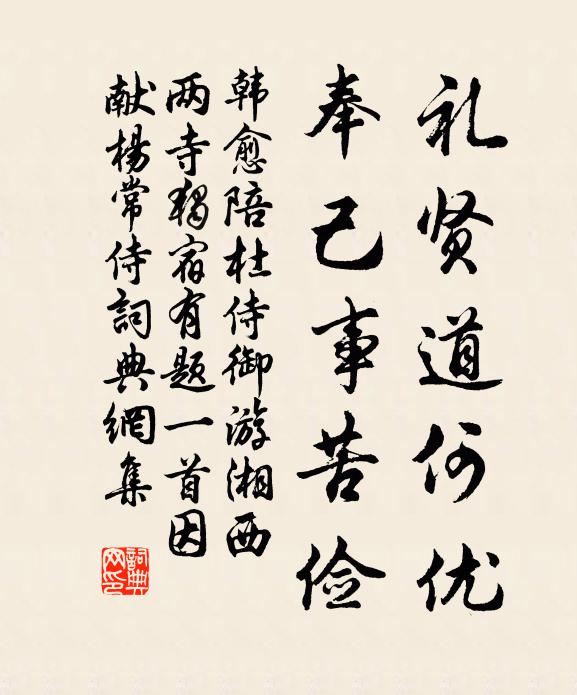 礼贤道何优
奉己事苦俭
韩愈陪杜侍御游湘西
两寺独宿有题一首因
献楊常侍詞典網集
詞典
网印